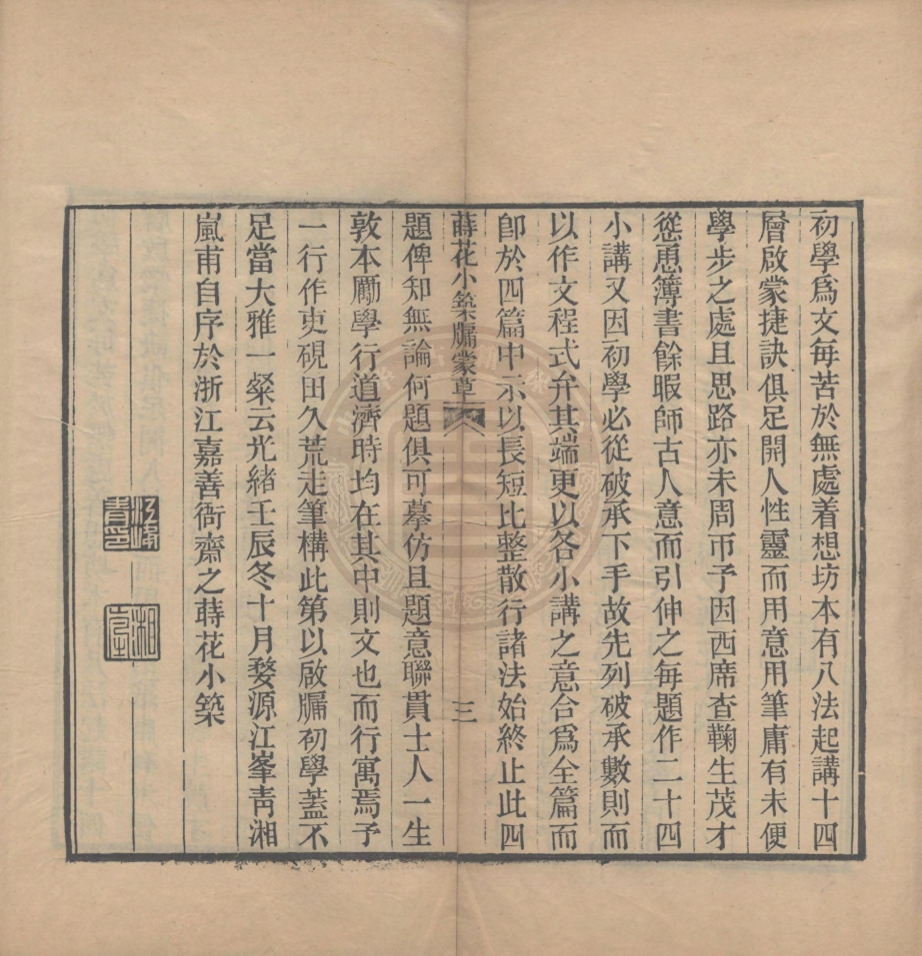 初學爲文每苦於無處着想坊本有八法起講十四
層啟蒙捷訣俱足開人性靈而用意用筆庸有未便
學步之處且思路亦未周帀予因西席查鞠生茂才
慫恿簿書餘暇師古人意而引伸之每題作二十四
小講又因初學必從破承下手故先列破承數則而
以作文程式弁其端更以各小講之意合爲全篇而
卽於四篇中示以長短比整散行諸法始終止此四
蒔花小築牖蒙草 三
題俾知無論何題俱可摹仿且題意聯貫士人一生
敦本勵學行道濟時均在其中則文也而行寓焉予
一行作吏硯田久荒走筆構此第以啟牖初學蓋不
足當大雅一粲云光緒壬辰冬十月婺源江峯靑湘
嵐甫自序於浙江嘉善衙齋之蒔花小築
江峯
靑印
湘